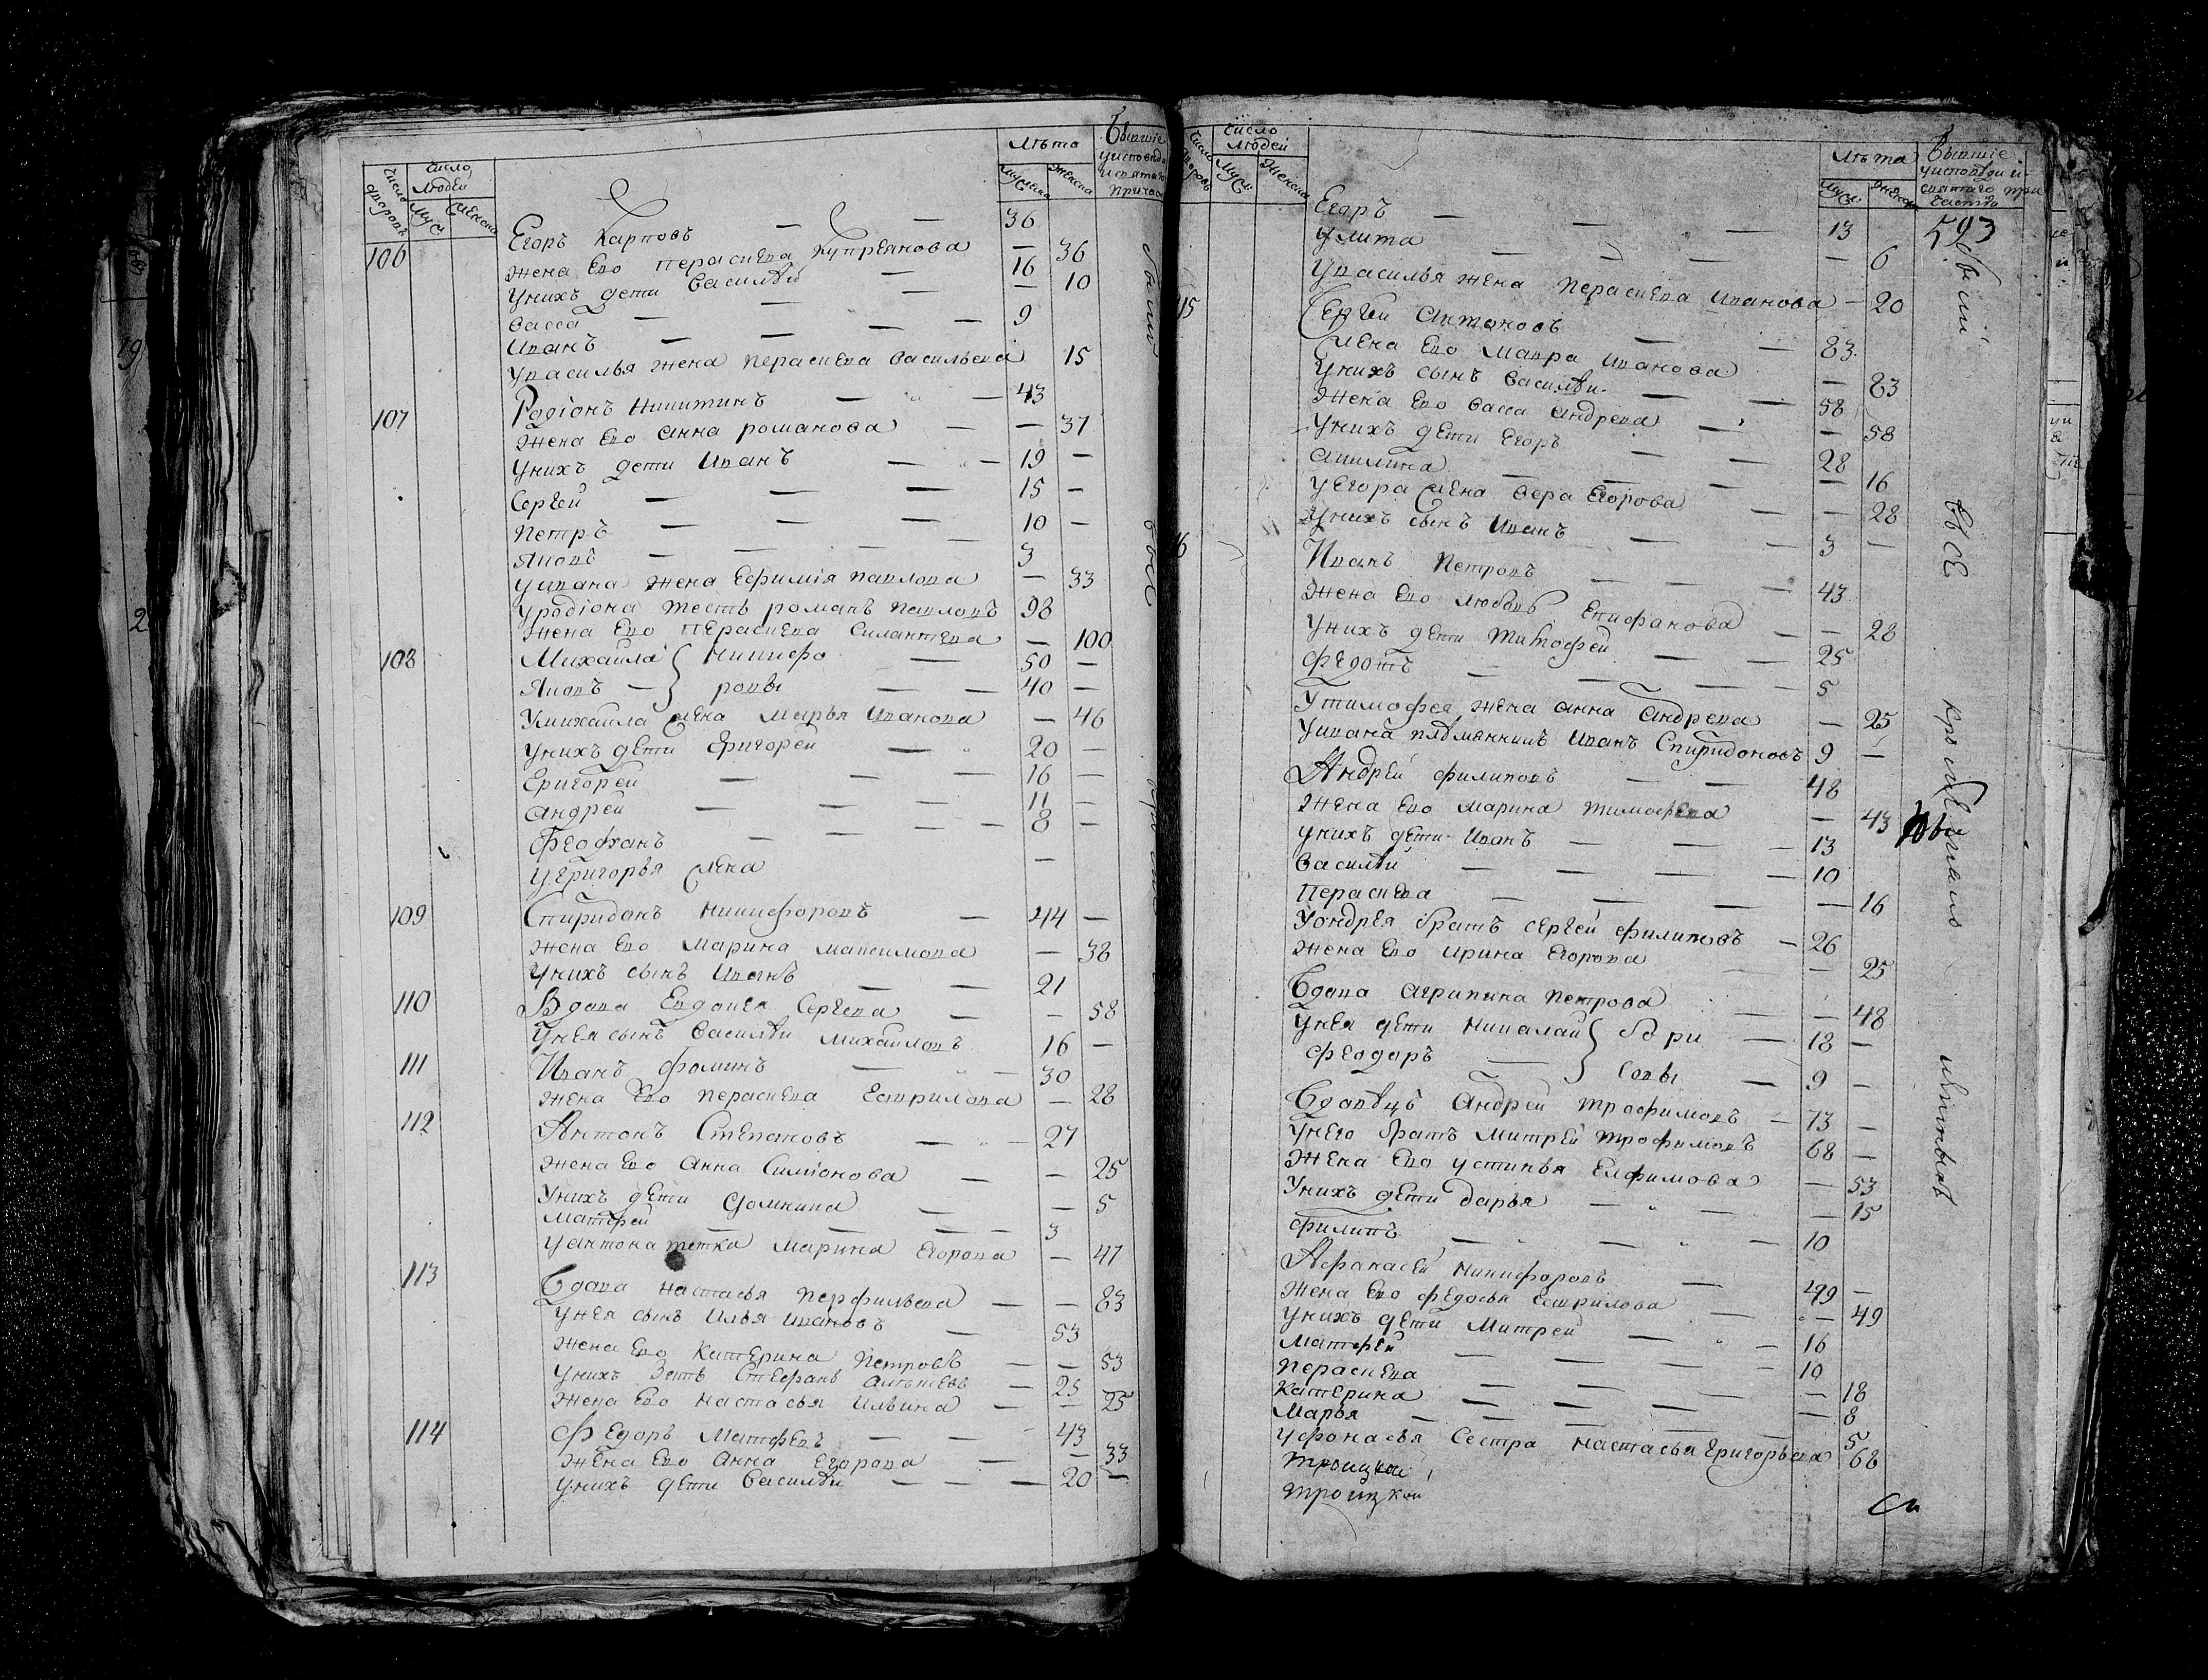 Число дворовъ
Число людей
Муск
Женска
Лѣта
Мускска
Женска
Бывшіе
106 Егоръ Карповъ — 36
Жена Ево Пераскева Купреянова — 36
Унихъ дети Василѣй — 16
Васса — 10
Иванъ — 9
Увасилья жена Пераскева Васильева 15
107 Родіонъ Никитинъ — 43
Жена Ево Анна романова — 37
Унихъ дети Иванъ — 19 —
Сергей — 15 —
Петръ — 10 —
Яковъ — 3
Уивана жена Ефимія Павлова — 33
Уродіона тесть романъ Павловъ 98
Жена Ево Пераскева Силантева — 100
108 Михайла } Никифо — 50 —
Яковъ — } ровы — 40 —
Умихайла жена Марья Иванова — 46
Унихъ дети Григорей — 20 —
Григорей — 16 —
Андрей — 11 —
Феофанъ — 8 —
Угригорья жена —
109 Спиридонъ Никифоровъ — 44 —
Жена Ево Марина Максимова — 38
Унихъ сынъ Иванъ — 21
110 Вдова Евдокея Сергева — 58
Унея сынъ Василѣй Михайловъ 16 —
111 Иванъ Фоминъ — 30
Жена Ево Пераскева Гаврилова — 28
112 Антонъ Степановъ — 27
Жена Ево Анна Симіонова — 25
Унихъ дети Домкина — 5
Матфей — 3
Уантона тетка Марина Егорова — 47
113 Вдова Настасья Перфильева — 83
Унея сынъ Илья Ивановъ — 53
Жена Ево Катерина Петровъ — 53
Унихъ Зеть Стефанъ — 25
Жена Ево Настасья Ильина — 25
114 Федоръ Матфевъ — 43
Жена Ево Анна Егорова — 33
Унихъ дети Василѣй — 20 —
были
все
Число дворовъ
Число людей
Муск
Женска
Лѣта
Муск
Женска
Бывшіе уисповѣди и святаго причастія
593
Егоръ — 13
Улита — 6
Увасилья жена Пераскева Иванова — 20
Сергей Антоновъ — 83
Жена Ево Мавра Иванова — 83
Унихъ сынъ Василѣй — 58
Жена Ево Васса Андрева — 58
Унихъ дети Егоръ — 28
Акилина — 16
Уегора жена Вера Егорова — 28
Унихъ сынъ Иванъ — 3 —
Иванъ Петровъ — 43
Жена Ево Любовь Епифанова — 28
Унихъ дети Тимофей — 25
Федотъ — 5
Утимофея жена Анна Андрева — 25
Уивана плѣмянникъ Иванъ Спиридоновъ 9 —
Андрей Филиповъ — 48
Жена Ево Марина Тимофева — 43
Унихъ дети Иванъ — 13
Василѣй — 10
Пераскева — 16
Уандрея братъ Сергей Филиповъ — 26
Жена Ево Ирина Егорова — 25
Вдова Агрипина Петрова — 48
Унея дети Николай } бори — 18 —
Феодоръ — } совы — 9 —
Вдовецъ Андрей Трофимовъ — 73 —
Унего братъ Митрей Трофимовъ 68 —
Жена Ево Устинья Елфимова — 53
Унихъ дети Дарья — 15
Филипъ — 10
Афонасей Никифоровъ — 49 —
Жена Ево Федосья Гаврилова — 49
Унихъ дети Митрей — 16
Матфей — 10
Пераскева — 18
Катерина — 8
Марья — 5
Уафонасья Сестра Настасья Григорьева 68
Троицкой
Троицкой
были
все
кроме